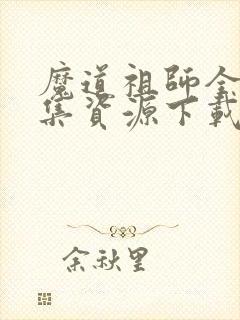 魔道祖師全
集資源下載
余秋里